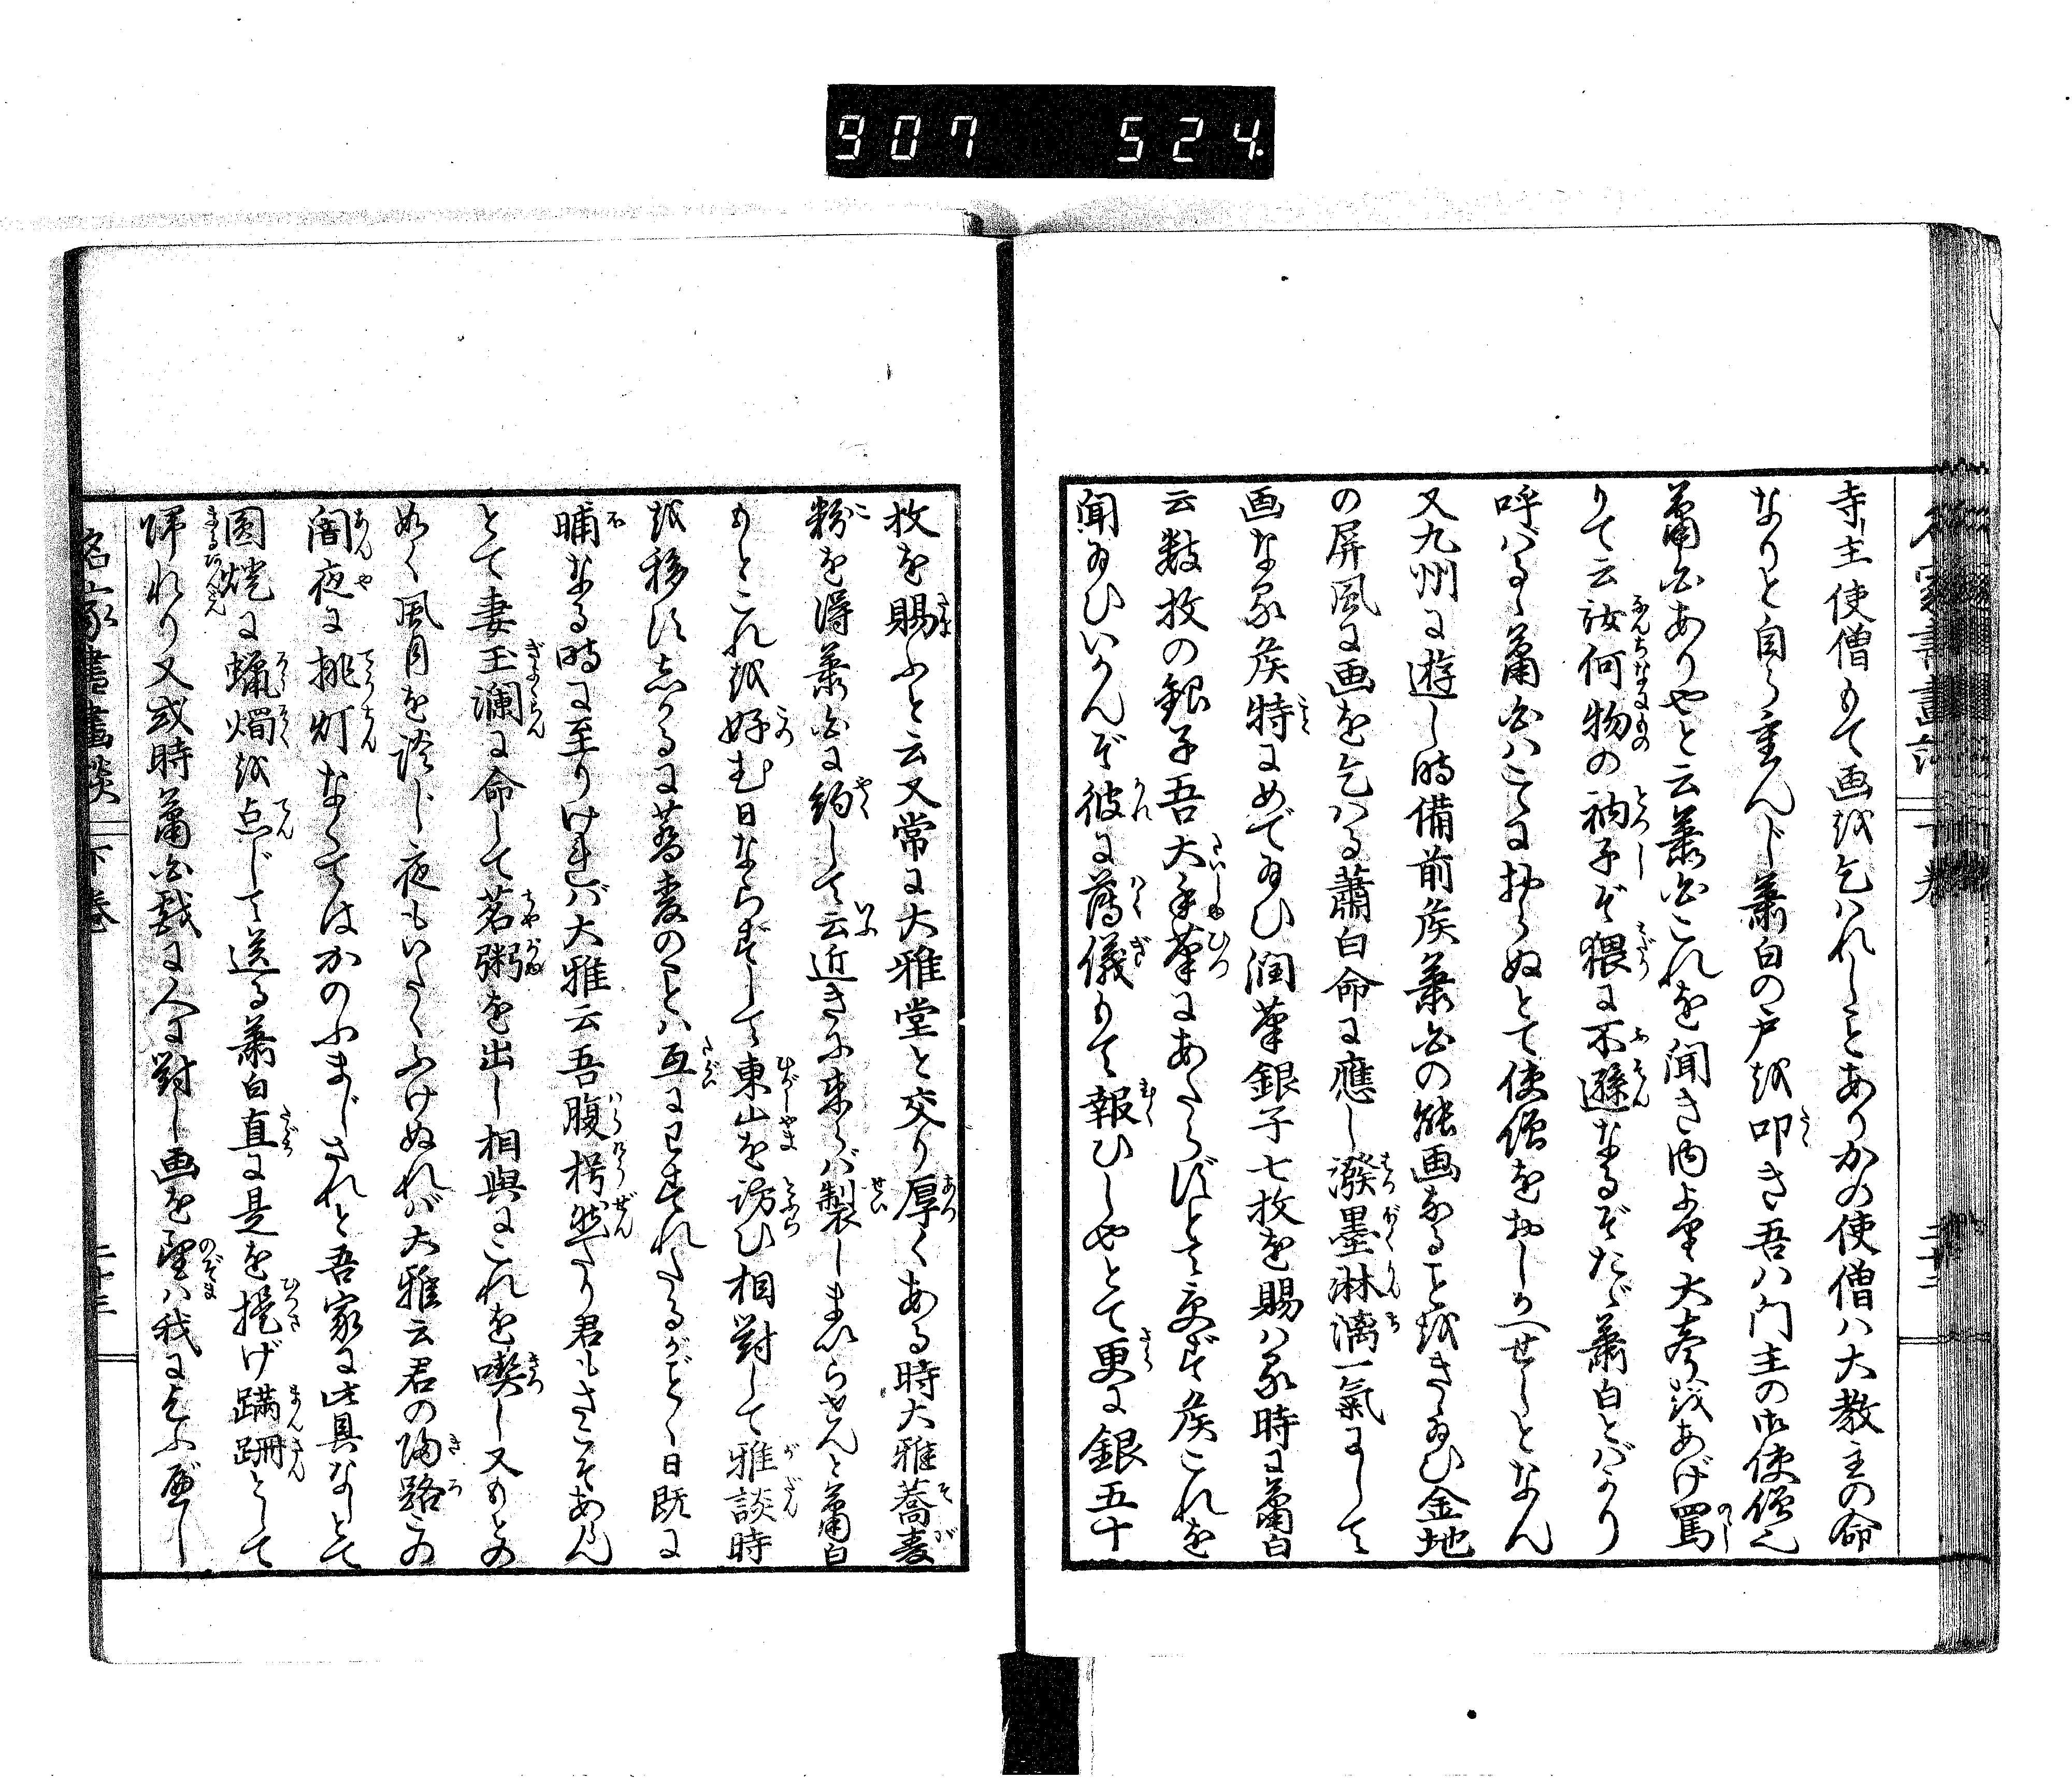 907 524
名家書畫談 下巻 二十二
寺主使僧もて画を乞はれしことありかの使僧ハ大教主の命
なりと自ら重んじ蕭白の戸を叩き吾ハ門主の御使僧也
蕭白ありやと云蕭白これを聞き内より大声をあげ罵
りて云汝何物の衲子ぞ猥に不遜なるぞたゞ蕭白とばかり
呼バる蕭白ハこゝにおらぬとて使僧をおしかへせしとなん
又九州に遊し時備前侯蕭白の能画なることをきゝ給ひ金地
の屏風に画を乞ハる蕭白命に應し潑墨淋漓一氣にして
画なる侯特にめで給ひ潤筆銀子七枚を賜ハる時に蕭白
云数枚の銀子吾大手筆にあたらずとて受ず侯これを
聞給ひいかんぞ彼に薄儀もて報ひしやとて更に銀五十
枚を賜ふと云又常に大雅堂と交り厚くある時大雅蕎麦
粉を得蕭白に約して云近きに来らバ製しまいらせんと蕭白
もとこれを好む日ならずして東山を訪ひ相對して雅談時
を移すしかるに蕎麦のことハ互にわすれたるがごとく日既に
晡なる時に至りけれバ大雅云吾腹枵然たり君もさこそあらん
とて妻玉瀾に命して茗粥を出し相與にこれを喫し又もとの
如く風月を談じ夜もいたくふけぬれバ大雅云君の帰路この
闇夜に挑灯なくてはかのふまじされと吾家に此具なしとて
圓燈に蠟燭を点じて送る蕭白直に是を提げ蹣跚として
帰れり又或時蕭白戯に人に對し画を望ハ我に乞ふべし
名家書畫談 下巻 二十三